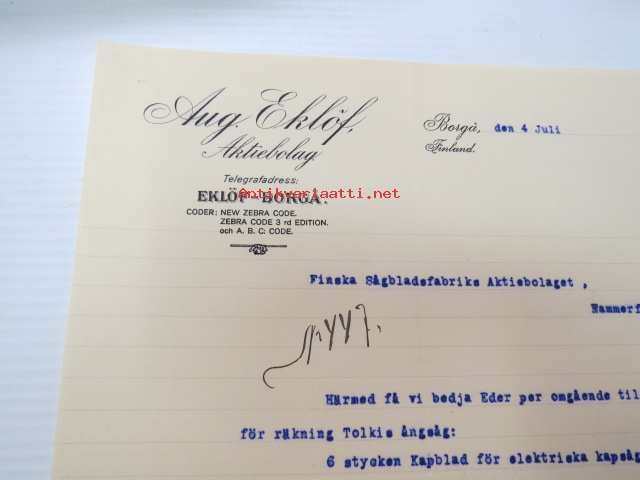 Aug. Eklöf,
Aktiebolag
Borgå, den 4 Juli
Finland.
Telegrafadress:
EKLÖF-BORGÅ.
Antikvariaatti.net
CODER: NEW ZEBRA CODE.
ZEBRA CODE 3 rd EDITION.
och A. B. C: CODE.
Finska Sågbladsfabriks Aktiebolaget ,
Hammerf
Härmed få vi bedja Eder per omgående til
för räkning Tolkis ångsåg:
6 stycken Kapblad för elektriska kapsåg